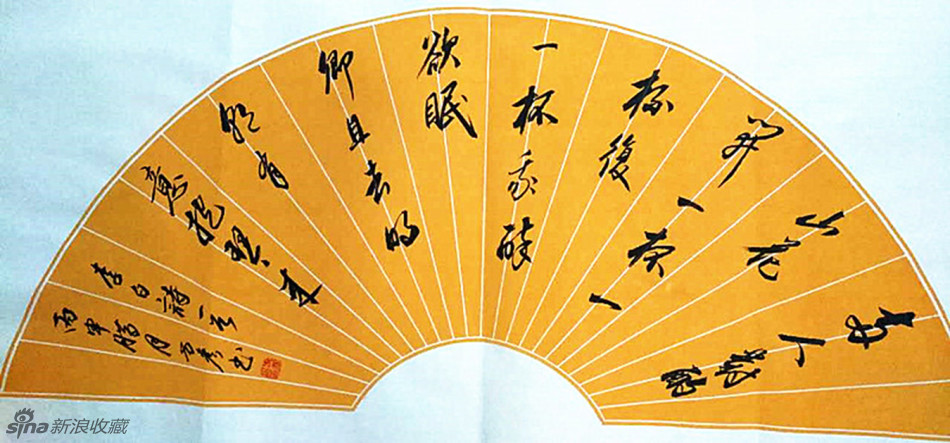 两人對酌
山花
開一杯一
杯復
一杯我醉
欲眠
卿且去明
朝有
意抱琴来
李白詩一首
丙申腊月書
sina新浪收藏